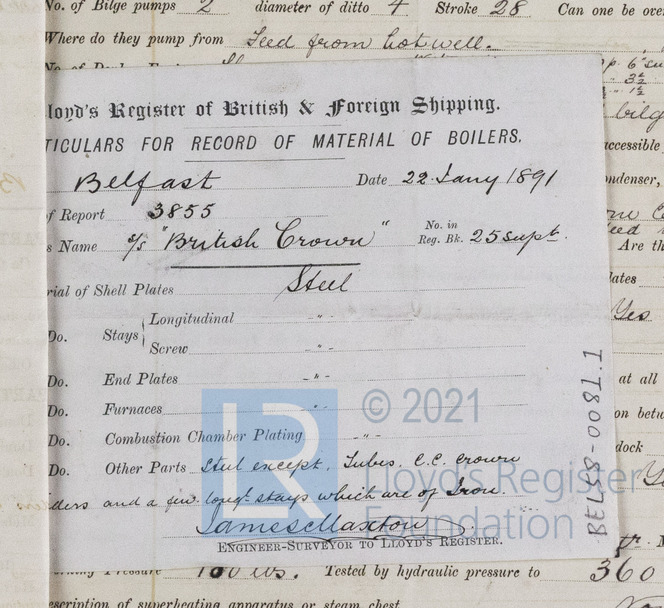 No. of Bilge pumps 2 diameter of ditto 4 Stroke 28 Can one be over
Where do they pump from Feed from hotwell.
loyd's Register of British & Foreign Shipping.
TICULARS FOR RECORD OF MATERIAL OF BOILERS.
Belfast Date 22 Jany 1891
f Report 3855
s Name s/s "British Crown" No. in Reg. Bk. 25 supt.
rial of Shell Plates Steel
Do. Stays Longitudinal -"-
Screw -"-
Do. End Plates -"-
Do. Furnaces -"-
Do. Combustion Chamber Plating -"-
Do. Other Parts Steel except. Tubes. C.C. crown
ders and a few longl. stays which are of Iron.
James Maxton
ENGINEER-SURVEYOR TO LLOYD'S REGISTER.
BEL58-0081.1
LR © 2021
Lloyd's Register
Foundation
ccessible
ondenser,
Are th
lates
Yes
at all
on betw
dock
Pressure 160 lbs. Tested by hydraulic pressure to 360
escription of superheating apparatus or steam chest